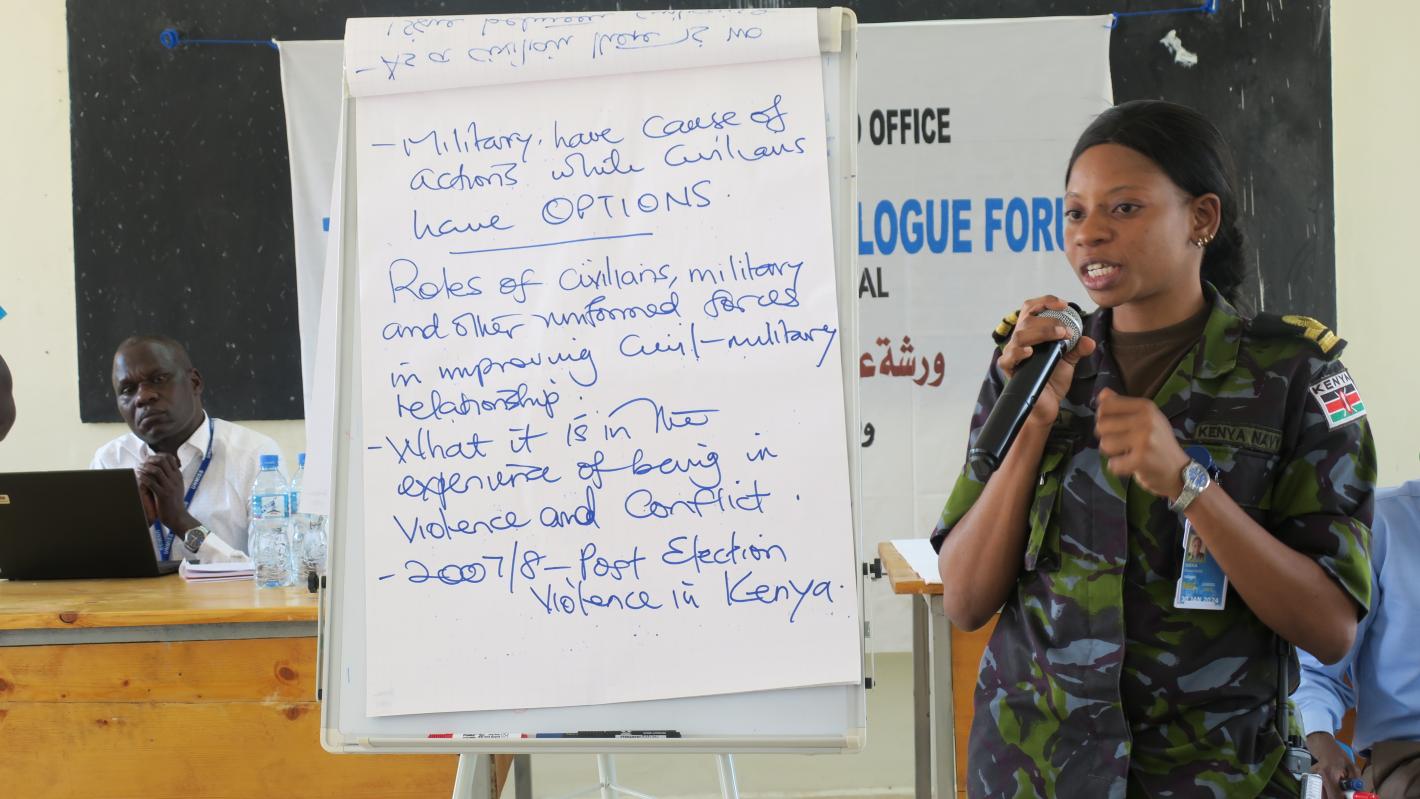 - Military have cause of
actions while civilians
have OPTIONS.
Roles of civilians, military
and other uniformed forces
in improving civil-military
relationship.
- What it is in the
experience of being in
violence and conflict.
- 2007/8 - Post Election
violence in Kenya.
OFFICE
LOGUE FORU
AL
ورشة ع
و
KENYA
KENYA NAVY
30 JAN 2024